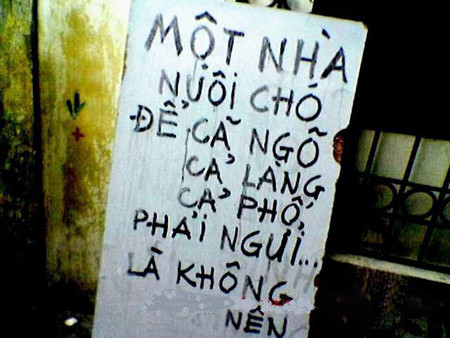 MỘT NHÀ
NUÔI CHÓ
ĐỂ CẢ NGÕ
CẢ LÀNG
CẢ PHỐ,
PHẢI NGỬI...
LÀ KHÔNG
NÊN